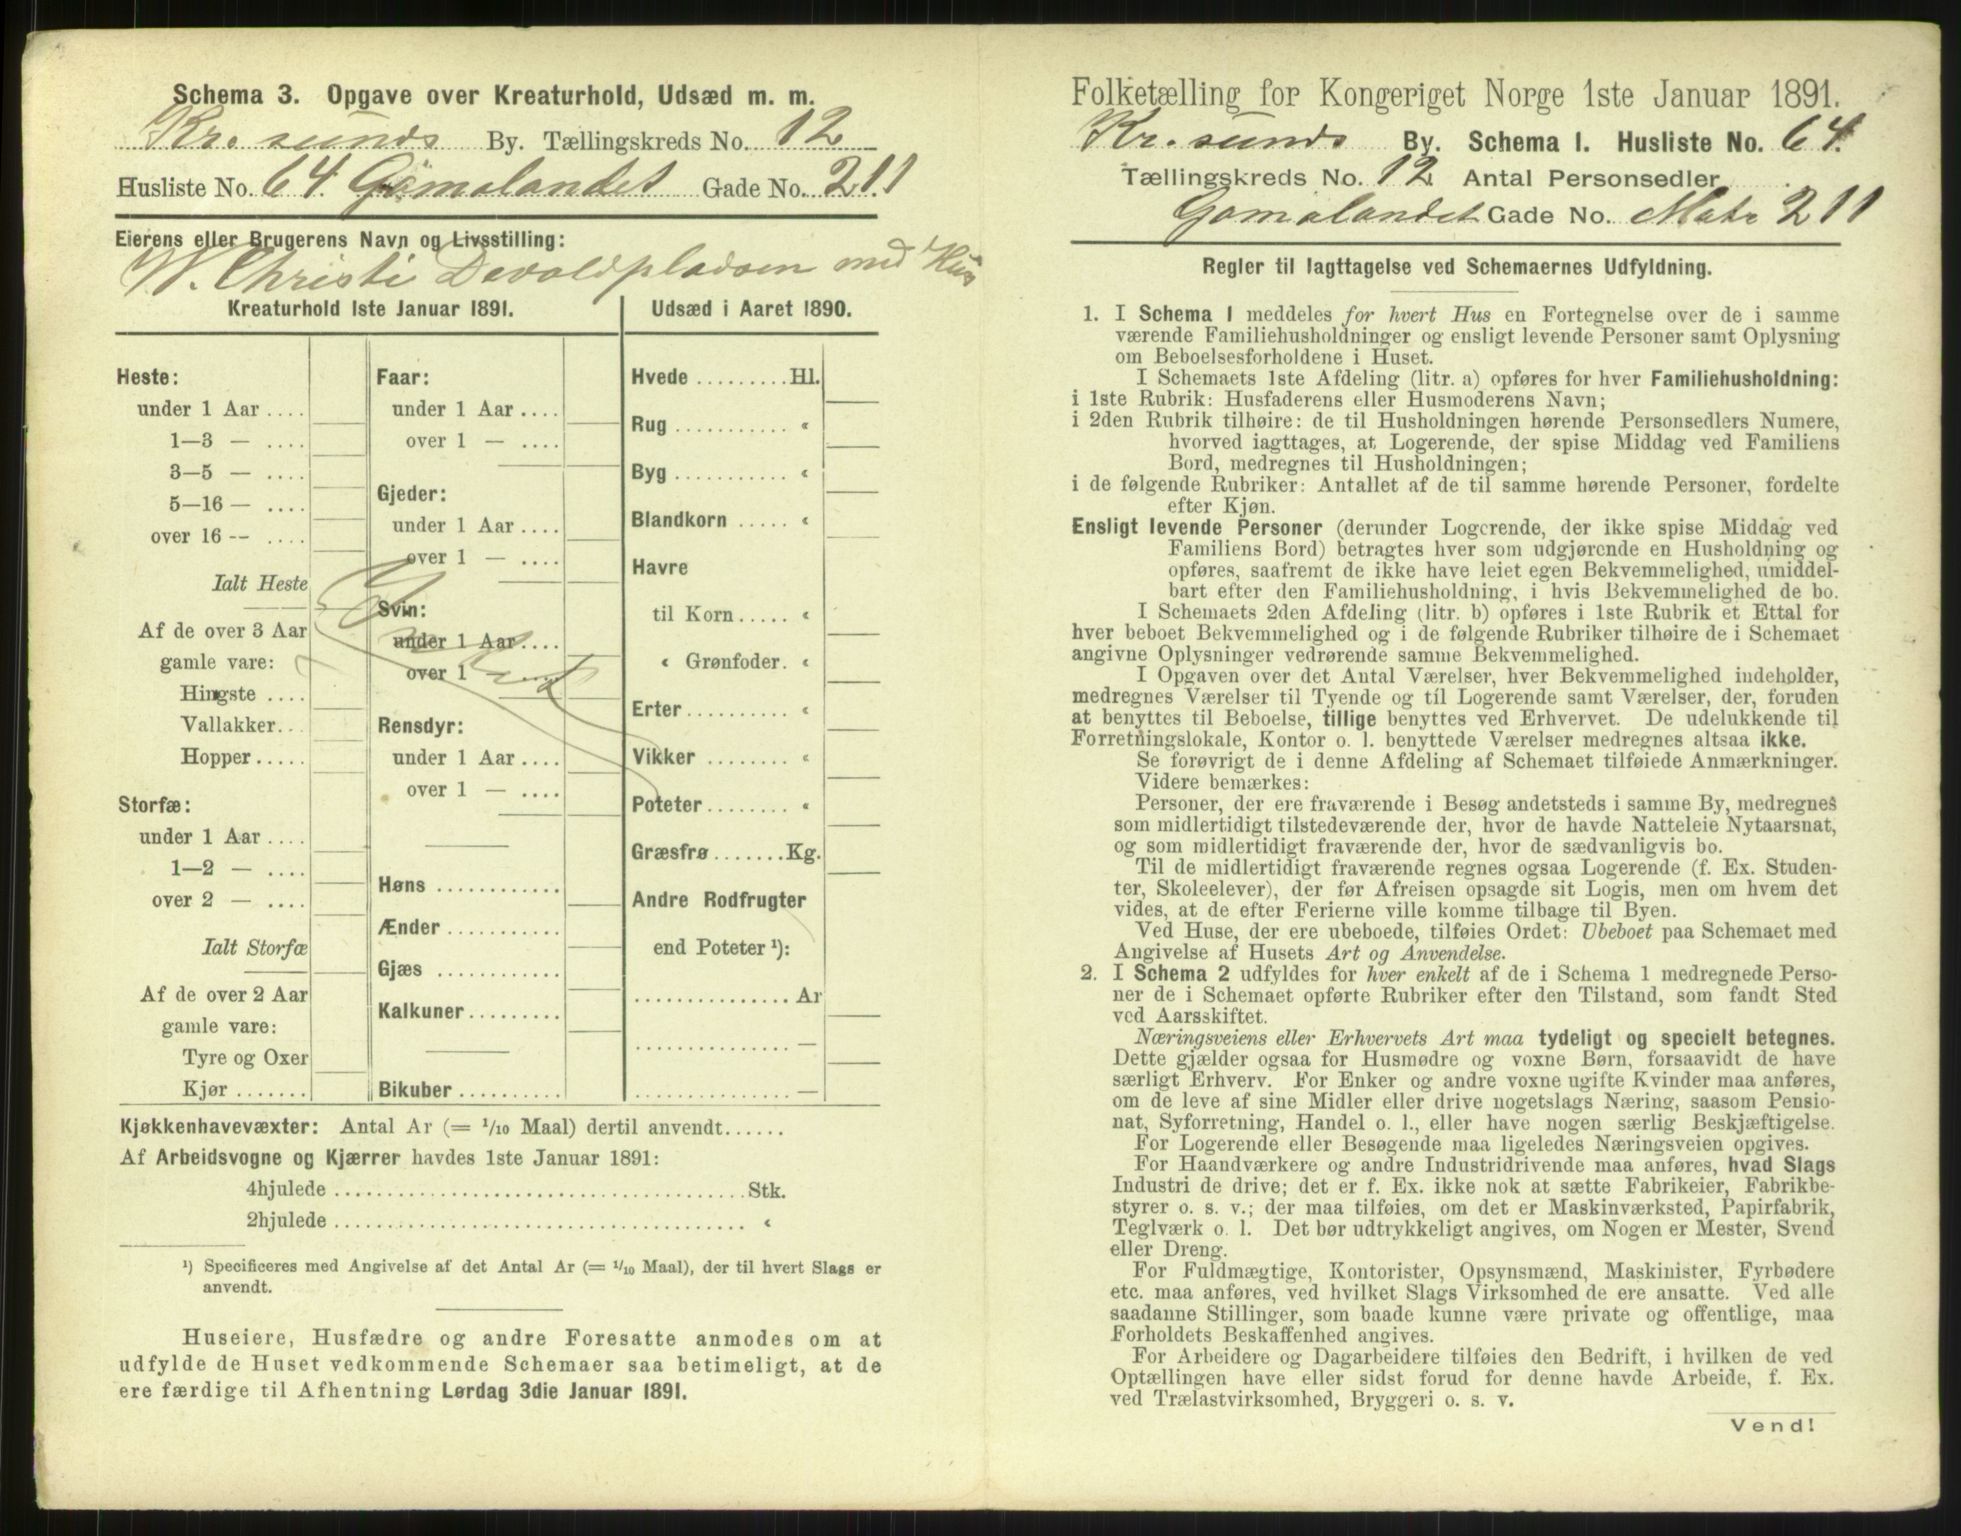 Schema 3. Opgave over Kreaturhold, Udsæd m. m.
Kr. sunds By. Tællingskreds No. 12
Husliste No. 64. Gomalandet Gade No. 211
Eierens eller Brugerens Navn og Livsstilling:
W. Christi Devoldpladsen med Hus
Kreaturhold 1ste Januar 1891.
Heste:
under 1 Aar ....
1—3 — ....
3—5 — ....
5—16 — ....
over 16 -- ....
Ialt Heste
Af de over 3 Aar
gamle vare:
Hingste ....
Vallakker...
Hopper.....
Storfæ:
under 1 Aar ....
1—2 — ....
over 2 — ....
Ialt Storfæ
Af de over 2 Aar
gamle vare:
Tyre og Oxer
Kjør .......
Faar:
under 1 Aar ....
over 1 — ....
Gjeder:
under 1 Aar ....
over 1 — ....
Svin:
under 1 Aar ....
over 1 — ....
Rensdyr:
under 1 Aar ....
over 1 — ....
Høns ............
Ænder ...........
Gjæs ............
Kalkuner.........
Bikuber ..........
Udsæd i Aaret 1890.
Hvede .........Hl.
Rug ........... «
Byg ........... «
Blandkorn ..... «
Havre
til Korn ..... «
« Grønfoder. «
Erter.......... «
Vikker ........ «
Poteter........ «
Græsfrø.......Kg.
Andre Rodfrugter
end Poteter ¹):
............... Ar
............... —
............... —
Kjøkkenhavevæxter: Antal Ar (= 1/10 Maal) dertil anvendt......
Af Arbeidsvogne og Kjærrer havdes 1ste Januar 1891:
4hjulede ....................................Stk.
2hjulede .................................... «
¹) Specificeres med Angivelse af det Antal Ar (= 1/10 Maal), der til hvert Slags er
anvendt.
Huseiere, Husfædre og andre Foresatte anmodes om at
udfylde de Huset vedkommende Schemaer saa betimeligt, at de
ere færdige til Afhentning Lørdag 3die Januar 1891.
Folketælling for Kongeriget Norge 1ste Januar 1891.
Kr. sunds By. Schema I. Husliste No. 64.
Tællingskreds No. 12 Antal Personsedler
Gomalandet Gade No. Matr 211
Regler til Iagttagelse ved Schemaernes Udfyldning.
1. I Schema I meddeles for hvert Hus en Fortegnelse over de i samme
værende Familiehusholdninger og ensligt levende Personer samt Oplysning
om Beboelsesforholdene i Huset.
I Schemaets 1ste Afdeling (litr. a) opføres for hver Familiehusholdning:
i 1ste Rubrik: Husfaderens eller Husmoderens Navn;
i 2den Rubrik tilhøire: de til Husholdningen hørende Personsedlers Numere,
hvorved iagttages, at Logerende, der spise Middag ved Familiens
Bord, medregnes til Husholdningen;
i de følgende Rubriker: Antallet af de til samme hørende Personer, fordelte
efter Kjøn.
Ensligt levende Personer (derunder Logerende, der ikke spise Middag ved
Familiens Bord) betragtes hver som udgjørende en Husholdning og
opføres, saafremt de ikke have leiet egen Bekvemmelighed, umiddel-
bart efter den Familiehusholdning, i hvis Bekvemmelighed de bo.
I Schemaets 2den Afdeling (litr. b) opføres i 1ste Rubrik et Ettal for
hver beboet Bekvemmelighed og i de følgende Rubriker tilhøire de i Schemaet
angivne Oplysninger vedrørende samme Bekvemmelighed.
I Opgaven over det Antal Værelser, hver Bekvemmelighed indeholder,
medregnes Værelser til Tyende og til Logerende samt Værelser, der, foruden
at benyttes til Beboelse, tillige benyttes ved Erhvervet. De udelukkende til
Forretningslokale, Kontor o. l. benyttede Værelser medregnes altsaa ikke.
Se forøvrigt de i denne Afdeling af Schemaet tilføiede Anmærkninger.
Videre bemærkes:
Personer, der ere fraværende i Besøg andetsteds i samme By, medregnes
som midlertidigt tilstedeværende der, hvor de havde Natteleie Nytaarsnat,
og som midlertidigt fraværende der, hvor de sædvanligvis bo.
Til de midlertidigt fraværende regnes ogsaa Logerende (f. Ex. Studen-
ter, Skoleelever), der før Afreisen opsagde sit Logis, men om hvem det
vides, at de efter Ferierne ville komme tilbage til Byen.
Ved Huse, der ere ubeboede, tilføies Ordet: Ubeboet paa Schemaet med
Angivelse af Husets Art og Anvendelse.
2. I Schema 2 udfyldes for hver enkelt af de i Schema 1 medregnede Perso-
ner de i Schemaet opførte Rubriker efter den Tilstand, som fandt Sted
ved Aarsskiftet.
Næringsveiens eller Erhvervets Art maa tydeligt og specielt betegnes.
Dette gjælder ogsaa for Husmødre og voxne Børn, forsaavidt de have
særligt Erhverv. For Enker og andre voxne ugifte Kvinder maa anføres,
om de leve af sine Midler eller drive nogetslags Næring, saasom Pensio-
nat, Syforretning, Handel o. l., eller have nogen særlig Beskjæftigelse.
For Logerende eller Besøgende maa ligeledes Næringsveien opgives.
For Haandværkere og andre Industridrivende maa anføres, hvad Slags
Industri de drive; det er f. Ex. ikke nok at sætte Fabrikeier, Fabrikbe-
styrer o. s. v.; der maa tilføies, om det er Maskinværksted, Papirfabrik,
Teglværk o. l. Det bør udtrykkeligt angives, om Nogen er Mester, Svend
eller Dreng.
For Fuldmægtige, Kontorister, Opsynsmænd, Maskinister, Fyrbødere
etc. maa anføres, ved hvilket Slags Virksomhed de ere ansatte. Ved alle
saadanne Stillinger, som baade kunne være private og offentlige, maa
Forholdets Beskaffenhed angives.
For Arbeidere og Dagarbeidere tilføies den Bedrift, i hvilken de ved
Optællingen have eller sidst forud for denne havde Arbeide, f. Ex.
ved Trælastvirksomhed, Bryggeri o. s. v.
Vend!